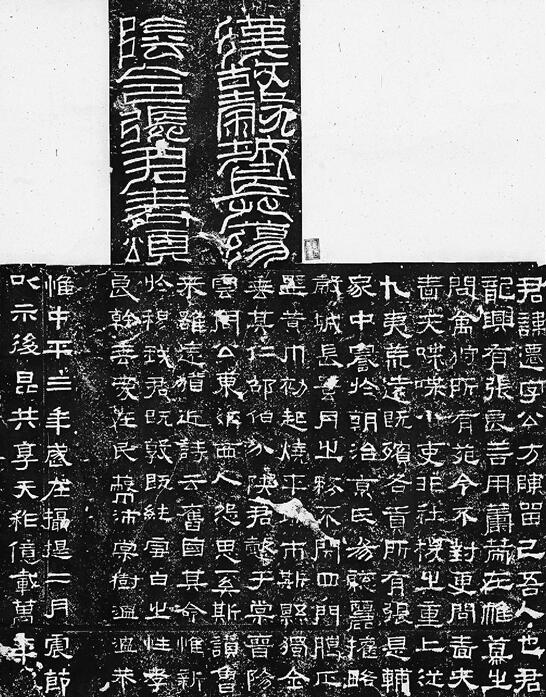 漢故穀城長蕩
陰令張君表頌
君諱遷字公方陳留己吾人也君
龍興有張良善用籌策在帷幕之
問禽狩所有苑令不對更問嗇夫
嗇夫喋喋小吏非社稷之重上從
八夷荒遠既殯各貢所有張是輔
家中謇於朝治京氏易聰麗權略
穀城長蠶月之務不閉四門臘正
野黃巾初起燒平城市斯縣獨全
垂其仁邵伯分陝君懿于棠晉陽
雲周公東征西人怨思奚斯讚魯
來雖遠猶近詩云舊國其命惟新
於穆我君既敦既純雪白之性孝
良幹垂愛在民蔽沛棠樹溫溫恭
惟中平三年歲在攝提二月震節
以示後昆共享天祚億載萬年